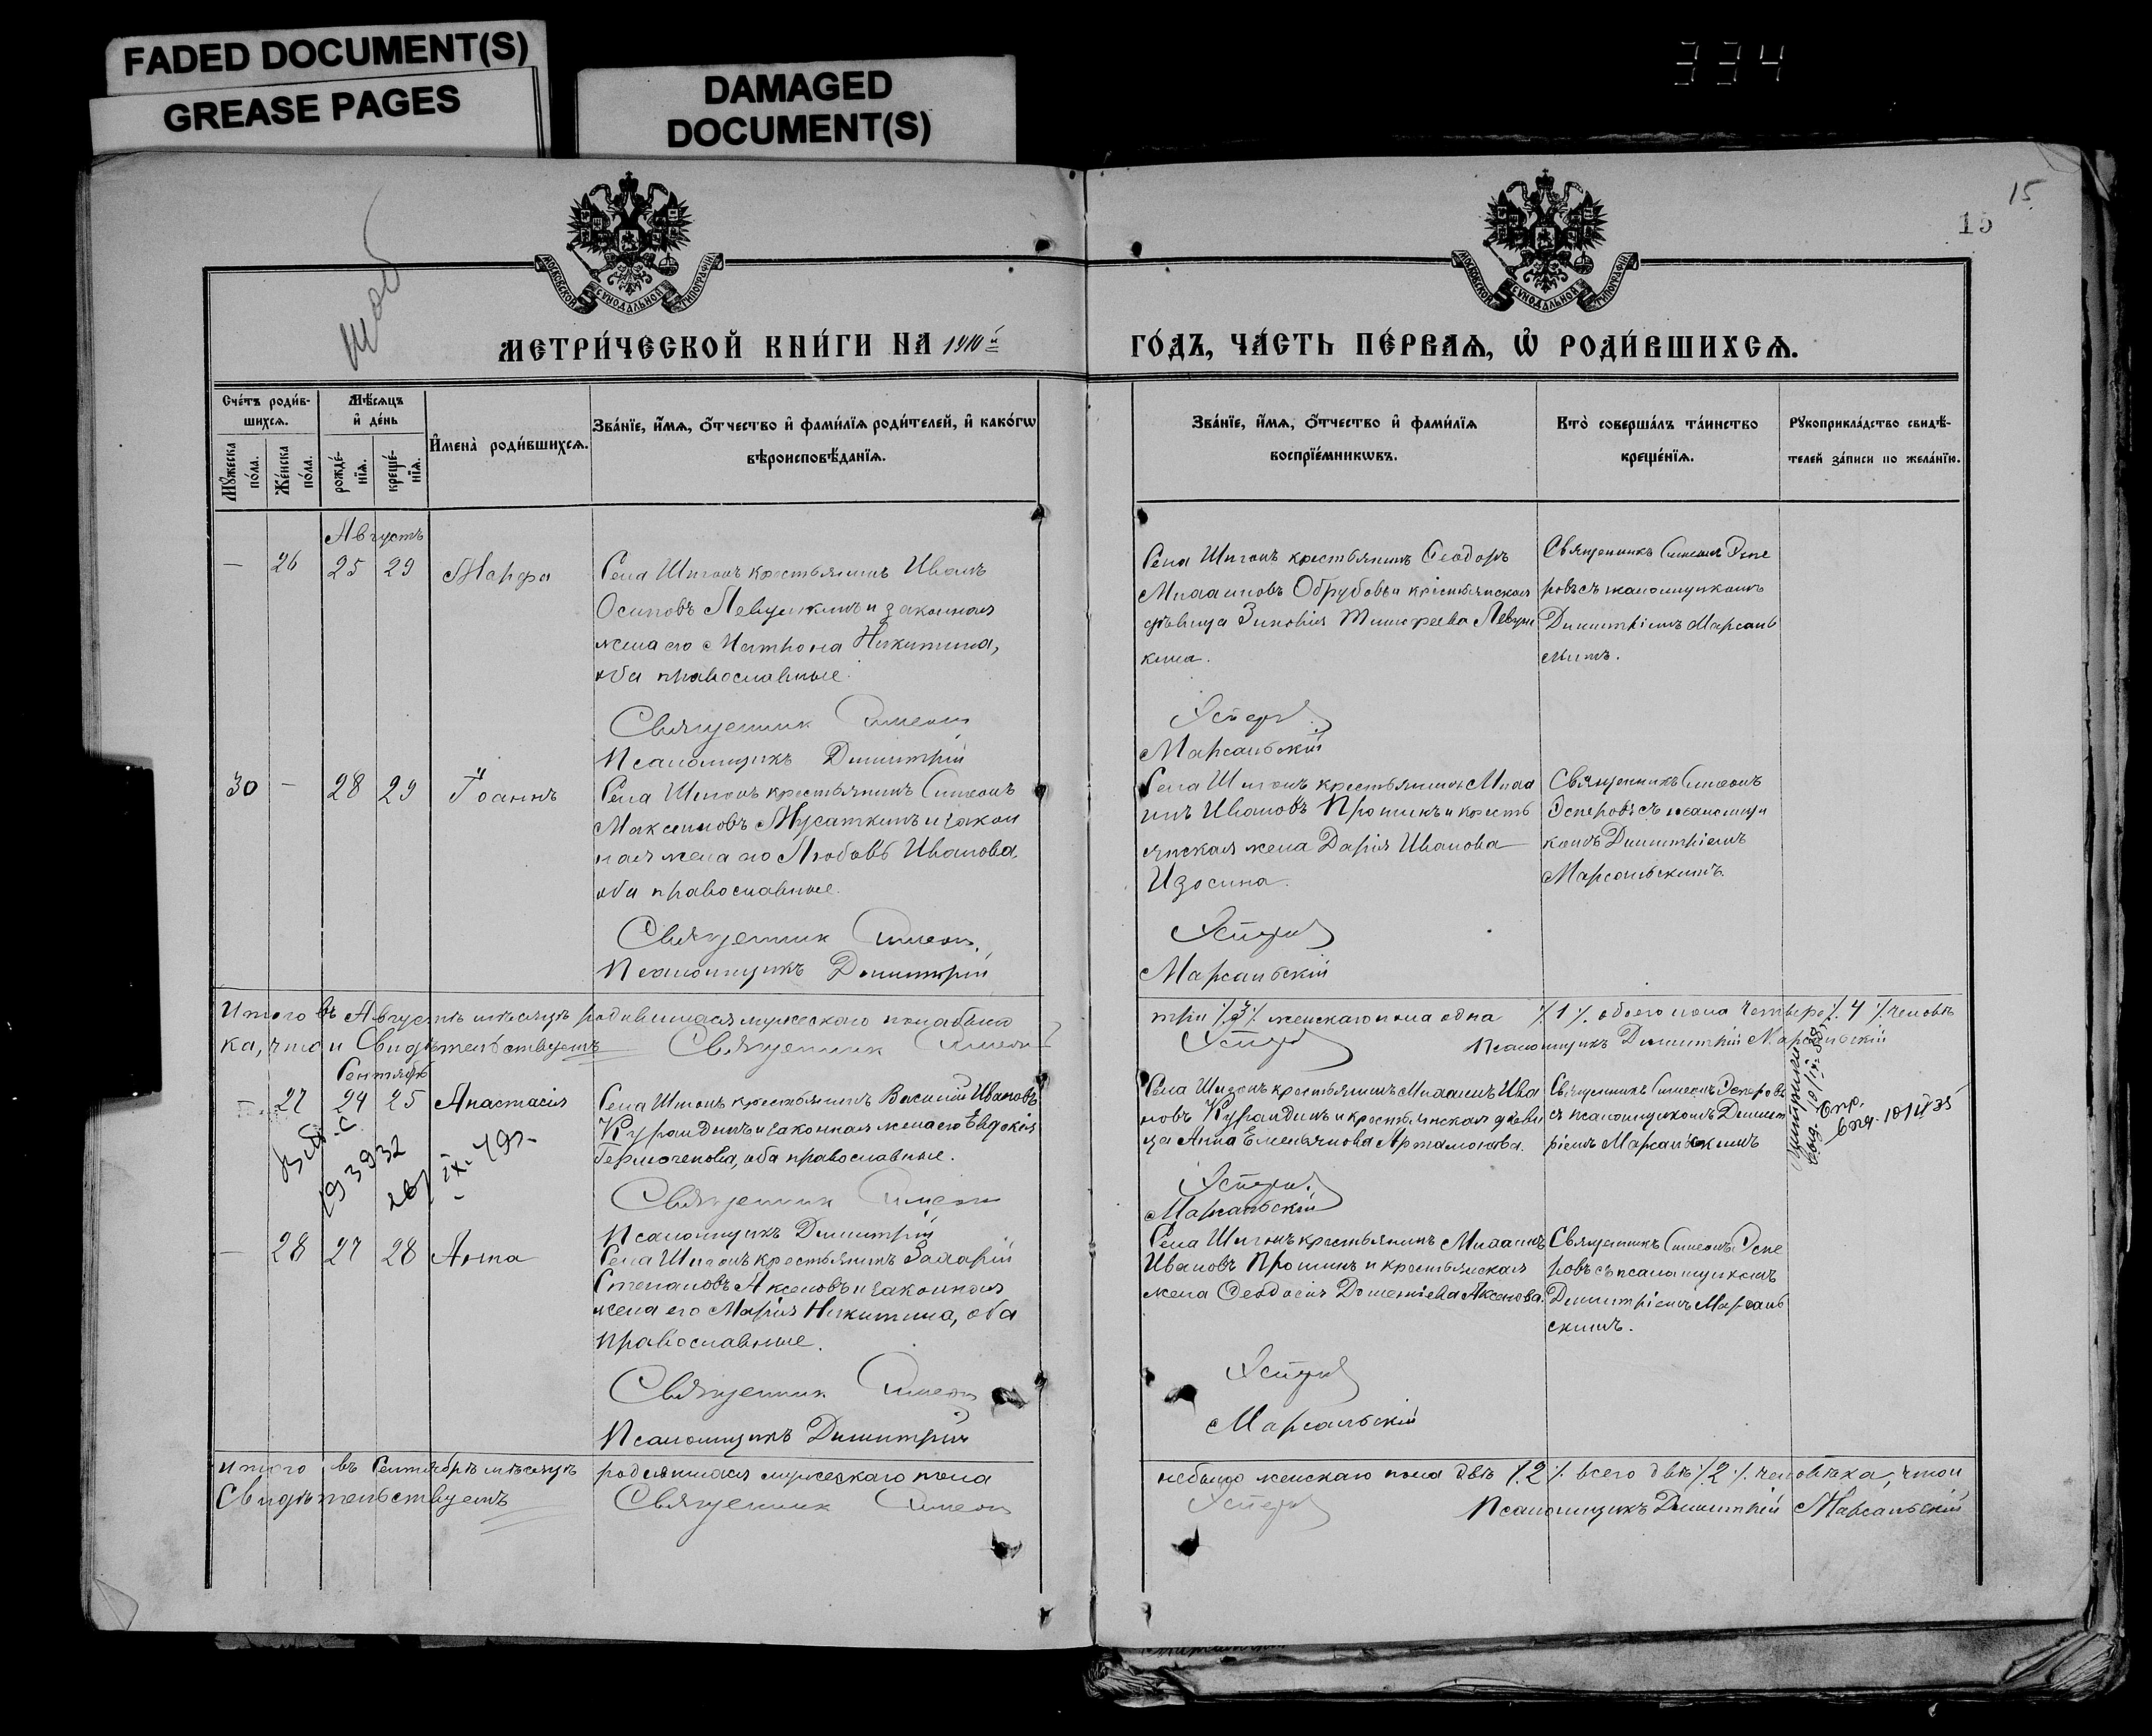 FADED DOCUMENT(S)
GREASE PAGES
DAMAGED
DOCUMENT(S)
334
15
15
МОСКОВСКОЙ СУНОДАЛЬНОЙ ТИПОГРАФІИ
МОСКОВСКОЙ СУНОДАЛЬНОЙ ТИПОГРАФІИ
МЕТРИ́ЧЕСКОЙ КНИ́ГИ НА 1910й
ГО́ДЪ, ЧА́СТЬ ПЕ́РВАѦ, Ѡ҆ РОДИ́ВШИХСѦ.
Сче́тъ роди́в-
шихсѧ.
Мꙋ́жеска по́ла.
Же́нска по́ла.
Мѣ́сѧцъ
и҆ де́нь
рожде́-
нїѧ.
креще́-
нїѧ.
И҆мена̀ роди́вшихсѧ.
Зва́нїе, и҆́мѧ, ѻ҆́тчество и҆ фами́лїѧ роди́телей, и҆ како́гѡ
вѣроисповѣ́данїѧ.
Зва́нїе, и҆́мѧ, ѻ҆́тчество и҆ фами́лїѧ
воспрїе́мникѡвъ.
Кто̀ соверша́лъ та́инство
креще́нїѧ.
Рꙋкоприкла́дство свидѣ́-
телей за́писи по жела́нїю.
Августъ
— 26 25 29 Марфа
Села Шигонъ крестьянинъ Иванъ
Осиповъ Левушкинъ и законная
жена его Матрона Никитина,
оба православные.
Священник Симеон
Псаломщикъ Димитрій
Села Шигонъ крестьянинъ Ѳеодоръ
Михаиловъ Обрубовъ и крестьянская
дѣвица Зиновія Тимофеева Левуш
кина.
Эсперов
Марсальскій
Священникъ Симеонъ Эспе
ровъ съ псаломщикомъ
Димитріемъ Марсаль
скимъ.
30 — 28 29 Іоаннъ
Села Шигонъ крестьянинъ Симеонъ
Максимовъ Мусаткинъ и закон
ная жена его Любовь Иванова,
оба православные.
Священник Симеон
Псаломщикъ Димитрій
Села Шигонъ крестьянинъ Миха
илъ Ивановъ Прошинъ и кресть
янская жена Дарія Иванова
Идосина.
Эсперов
Марсальскій
Священникъ Симеонъ
Эсперовъ съ псаломщи
комъ Димитріемъ
Марсальскимъ.
Итого въ Августѣ мѣсяцѣ родившихся мужескаго пола
три 3 женскаго пола одна 1 обоего пола четверо 4 человѣ
ка, что и Свидѣтельствуемъ Священник Симеон
Эсперов Псаломщикъ Димитрій Марсальскій
Сентябрь
27 24 25 Анастасія
Села Шигонъ крестьянинъ Василій Ивановъ
Курандинъ и законная жена его Евдокія
Гермогенова, оба православные.
Священник Симеон
Псаломщикъ Димитрій
Села Шигонъ крестьянинъ Михаилъ Ива
новъ Курандинъ и крестьянская дѣви
ца Анна Емельянова Артамонова.
Эсперов
Марсальскій
Священникъ Симеонъ Эсперовъ
съ псаломщикомъ Димит
ріемъ Марсальскимъ
193932
— 28 27 28 Анна
Села Шигонъ крестьянинъ Захарій
Степановъ Аксеновъ и законная
жена его Марія Никитина, оба
православные.
Священник Симеон
Псаломщикъ Димитрій
Села Шигонъ крестьянинъ Михаилъ
Ивановъ Прошинъ и крестьянская
жена Ѳеодосія Дометіева Аксенова.
Эсперов
Марсальскій
Священникъ Симеонъ Эспе
ровъ съ псаломщикомъ
Димитріемъ Марсаль
скимъ.
Итого въ Сентябрѣ мѣсяцѣ родившихся мужескаго пола
небыло женскаго пола двѣ 2 всего двѣ 2 человѣка, что и
Свидѣтельствуемъ Священник Симеон
Эсперов Псаломщикъ Димитрій Марсальскій